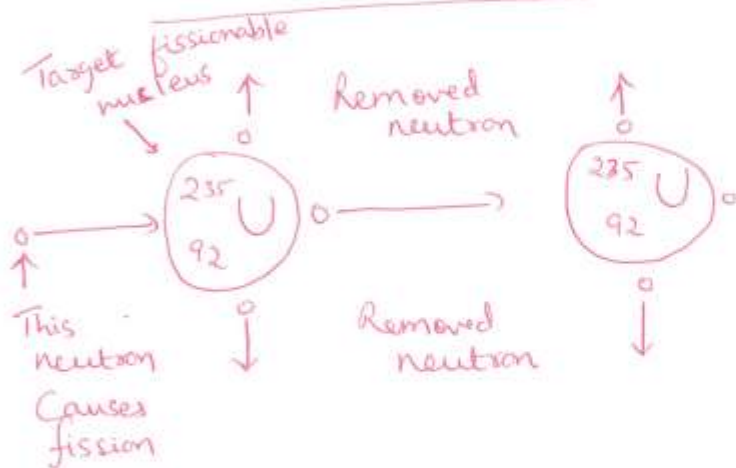 Target fissionable
nucleus
Removed
neutron
235
U
92
235
U
92
This
neutron
Causes
fission
Removed
neutron